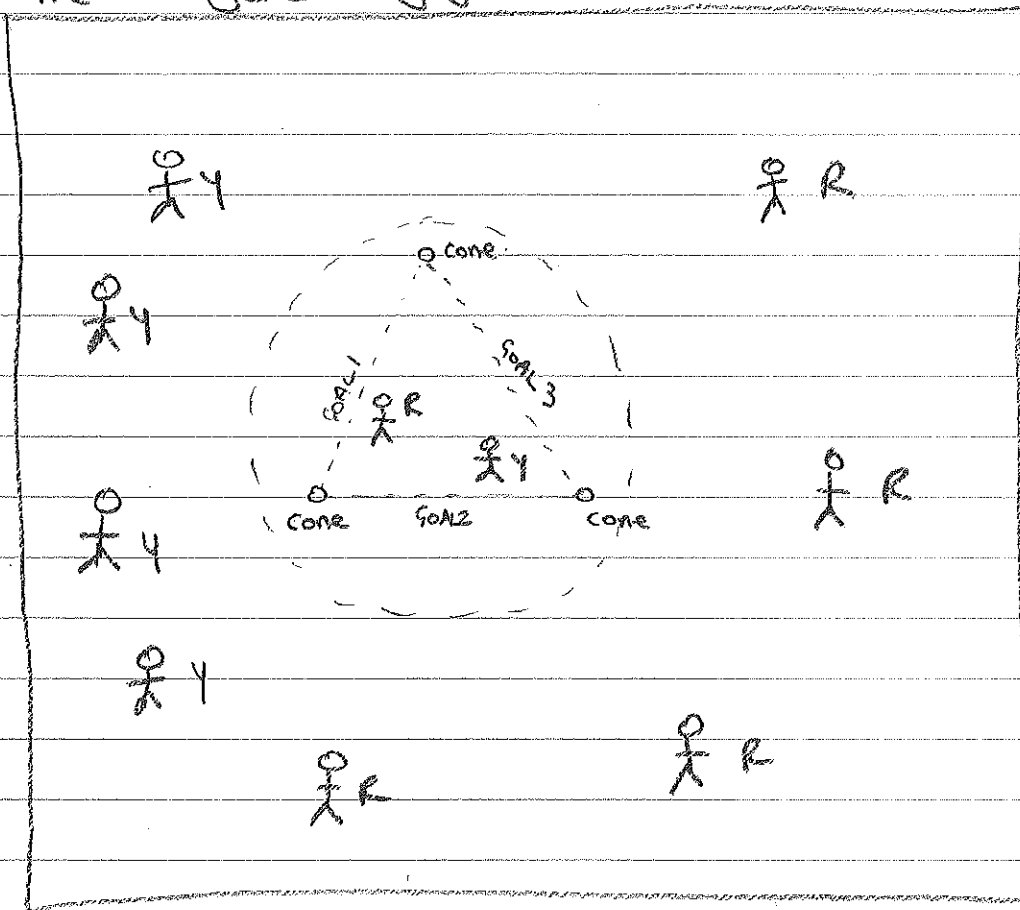 Y
R
cone
Y
GOAL 1
GOAL 3
R
Y
cone
GOAL2
cone
R
Y
Y
R
R